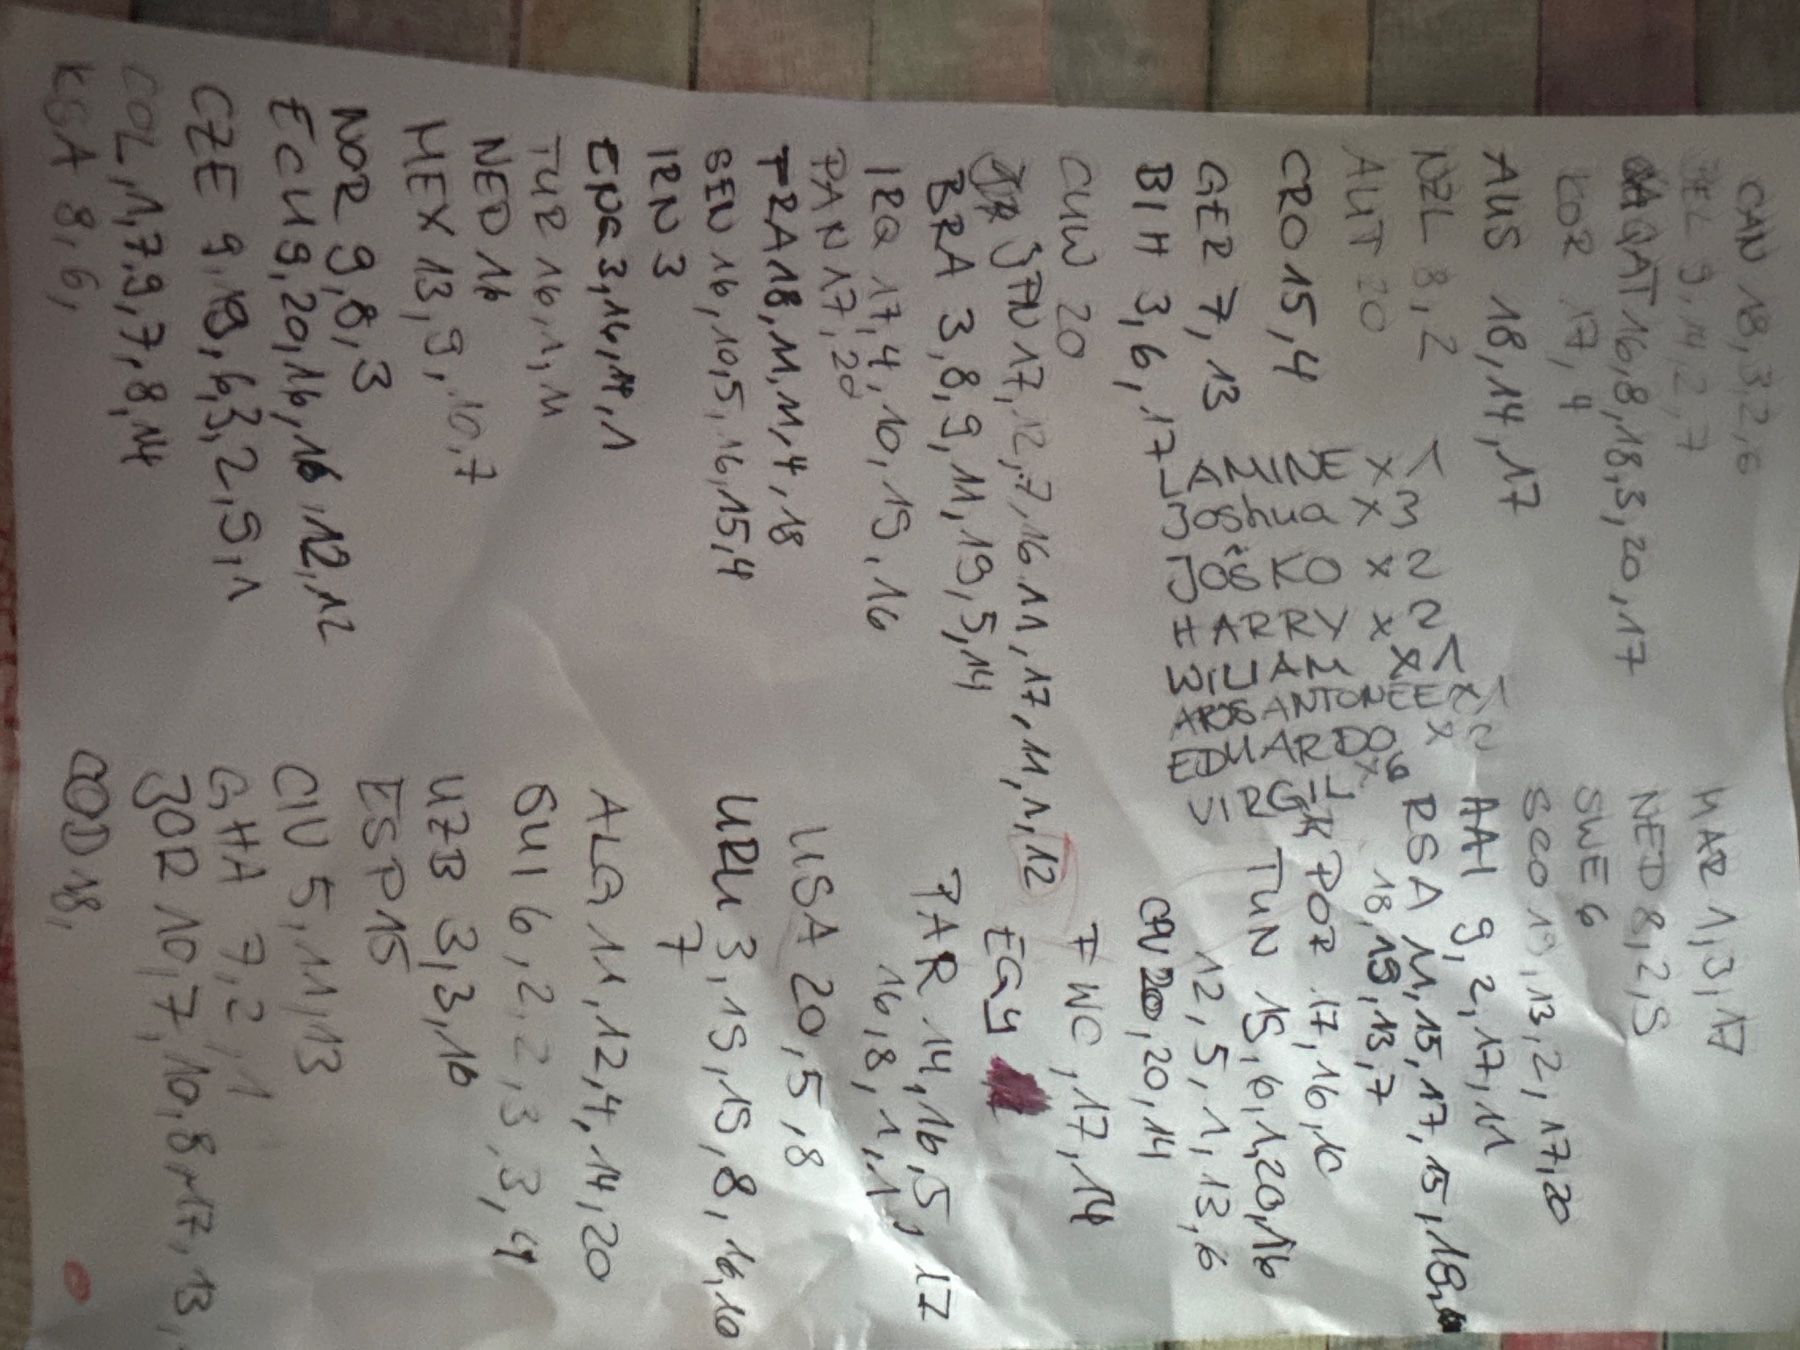 CAN 18,3,2,6
BEL 9,14,2,7
QAT 16,8,18,3,20,17
KOR 17,4
AUS 18,14,17
NZL 8,2
AUT 20
CRO 15,4
GER 7,13
BIH 3,6,17
CUW 20
JPN 17,12,7,16,11,17,11,1,12
BRA 3,8,9,11,19,5,14
IRQ 17,4,10,15,16
PAN 17,20
FRA 18,11,11,4,18
SEN 16,10,5,16,15,4
IRN 3
ENG 3,16,14,1
TUR 16,1,11
NED 16
MEX 13,9,10,7
NOR 9,8,3
ECU 9,20,16,16,12,12
CZE 9,19,6,3,2,5,1
COL 1,7,9,7,8,14
KSA 8,6,
LAMINE x1
Joshua x3
JOŠKO x2
HARRY x2
WILIAM x1
ANTONEE x1
EDUARDO x2
VIRGIL x6
MAR 1,3,17
NED 8,2,5
SWE 6
SCO 19,13,2,17,20
HAI 9,2,17,11
RSA 11,15,17,15,18,
18,19,13,7
POR 17,16,10
TUN 15,6,1,20,16
12,5,1,13,6
CPV 20,20,14
FWC,17,14
EGY
PAR 14,16,5,17
16,8,1,1,
USA 20,5,8
URU 3,15,15,8,16,10
7
ALG 11,12,4,14,20
SUI 6,2,2,3,3,4
UZB 3,3,16
ESP 15
CIV 5,11,13
GHA 7,2,1
JOR 10,7,10,8,17,13,
COD 18,